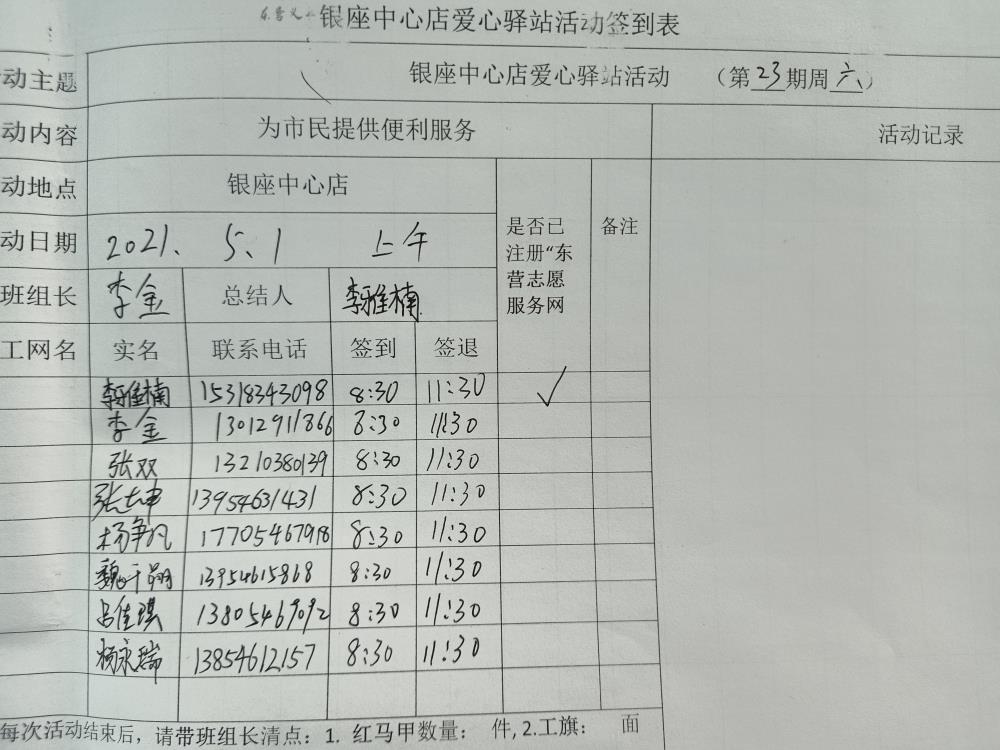 银座中心店爱心驿站活动签到表
动主题 银座中心店爱心驿站活动 （第23期周六）
动内容 为市民提供便利服务 活动记录
动地点 银座中心店 是否已注册“东营志愿服务网 备注
动日期 2021、5、1 上午
班组长 李金 总结人 李雅楠
工网名 实名 联系电话 签到 签退
李雅楠 15318343098 8:30 11:30 ✓
李金 13012911866 8:30 11:30
张双 13210380139 8:30 11:30
13954631431 8:30 11:30
杨争凡 17705467918 8:30 11:30
13954615868 8:30 11:30
吕佳琪 13805469092 8:30 11:30
杨永瑞 13854612157 8:30 11:30
每次活动结束后，请带班组长清点：1. 红马甲数量： 件, 2.工旗： 面